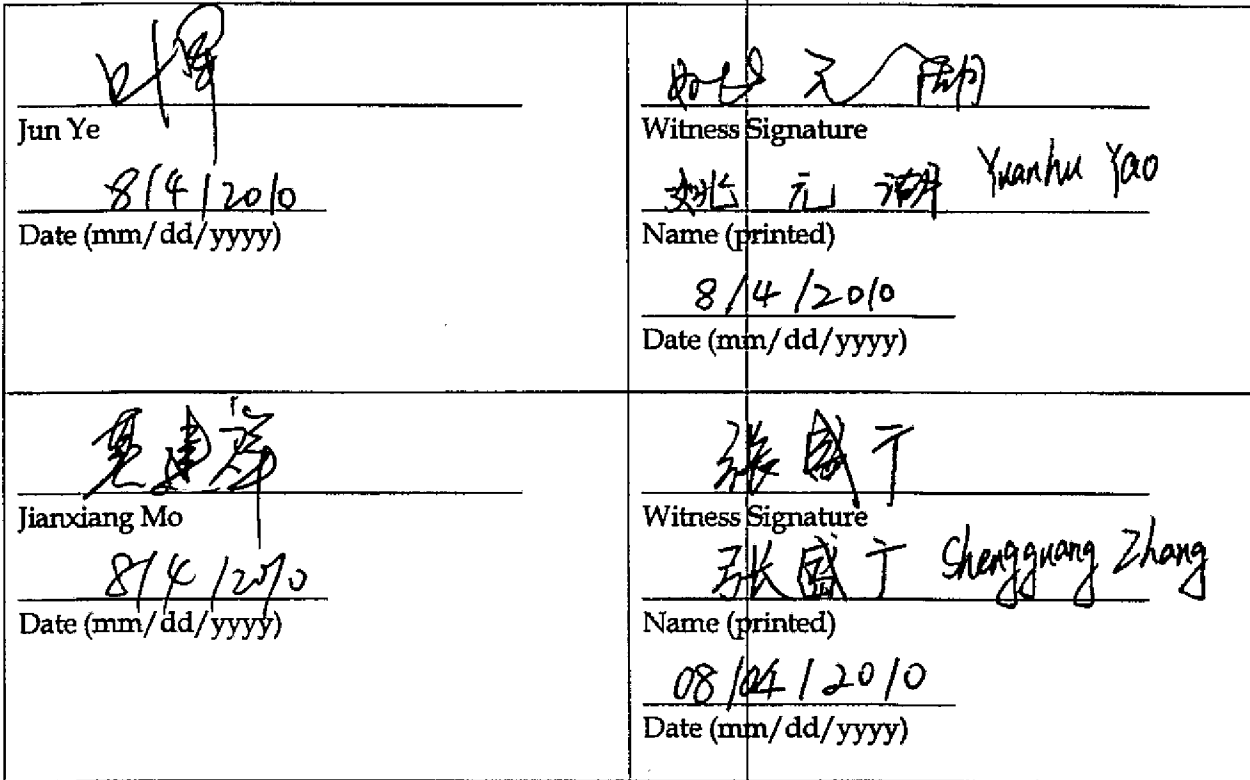 叶军
Jun Ye
8/4/2010
Date (mm/dd/yyyy)
姚元湖
Witness Signature
姚元湖 Yuanhu Yao
Name (printed)
8/4/2010
Date (mm/dd/yyyy)
Jianxiang Mo
8/4/2010
Date (mm/dd/yyyy)
張盛
Witness Signature
张盛 Shengguang Zhang
Name (printed)
08/04/2010
Date (mm/dd/yyyy)